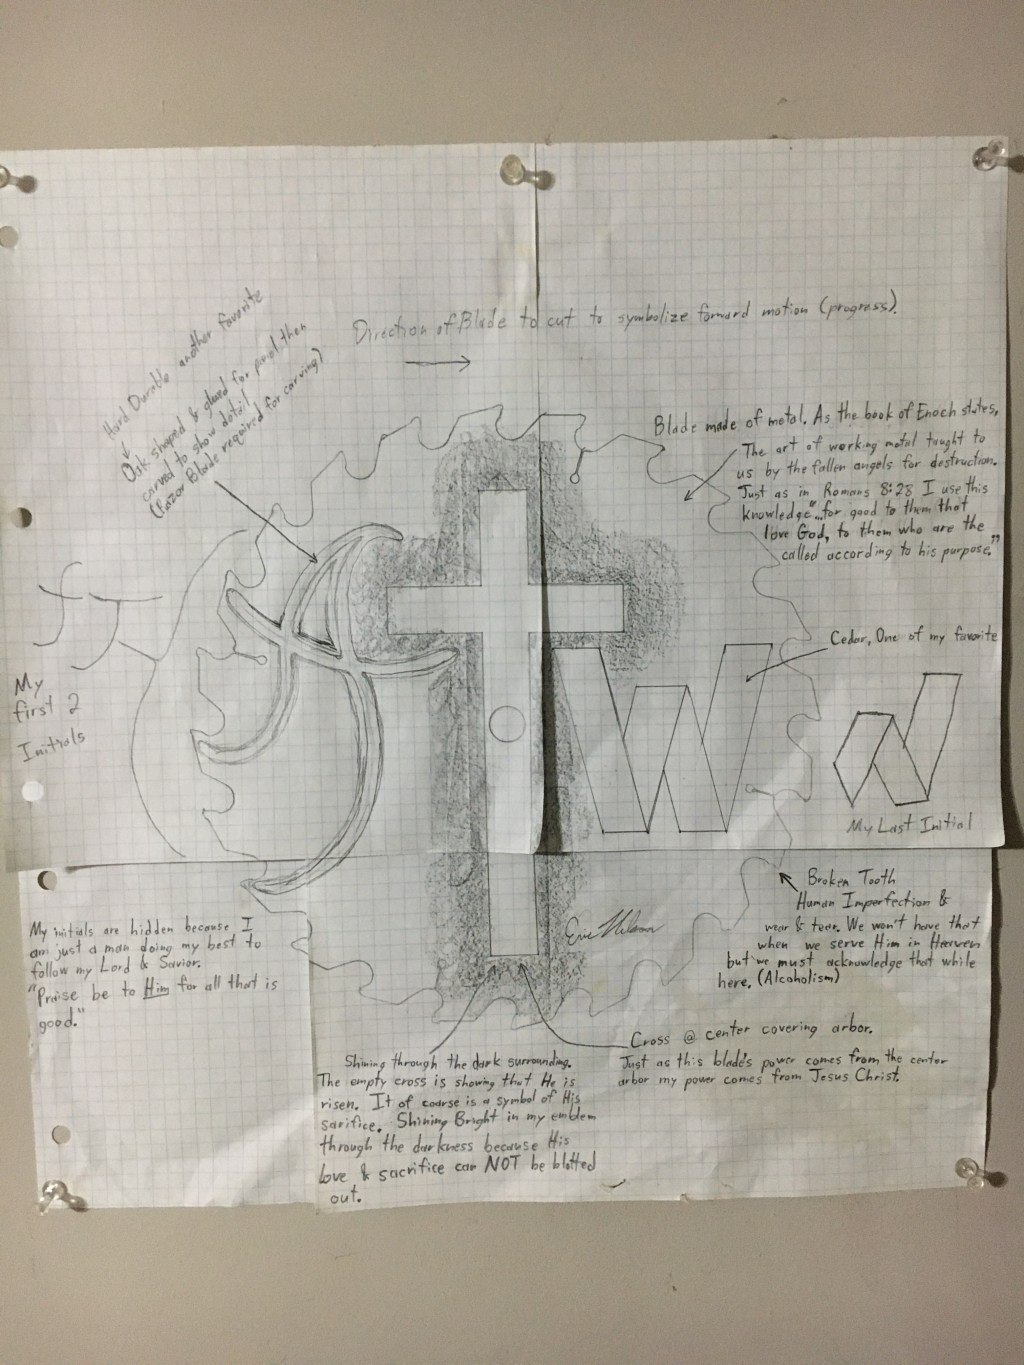 Direction of Blade to cut to symbolize forward motion (progress).
Hard Durable another favorite
Oak shaped & glued for panel then
carved to show detail
(Razor Blade required for carving)
Blade made of metal. As the book of Enoch states,
The art of working metal taught to
us by the fallen angels for destruction.
Just as in Romans 8:28 I use this
knowledge "...for good to them that
love God, to them who are the
called according to his purpose."
Cedar, One of my favorite
My
first 2
Initials
My Last Initial
Broken Tooth
Human Imperfection &
wear & tear. We won't have that
when we serve Him in Heaven
but we must acknowledge that while
here, (Alcoholism)
My initials are hidden because I
am just a man doing my best to
follow my Lord & Savior.
"Praise be to Him for all that is
good."
Cross @ center covering arbor.
Just as this blade's power comes from the center
arbor my power comes from Jesus Christ.
Shining through the dark surrounding.
The empty cross is showing that He is
risen. It of coarse is a symbol of His
sarifice. Shining Bright in my emblem
through the darkness because His
love & sacrifice can NOT be blotted
out.